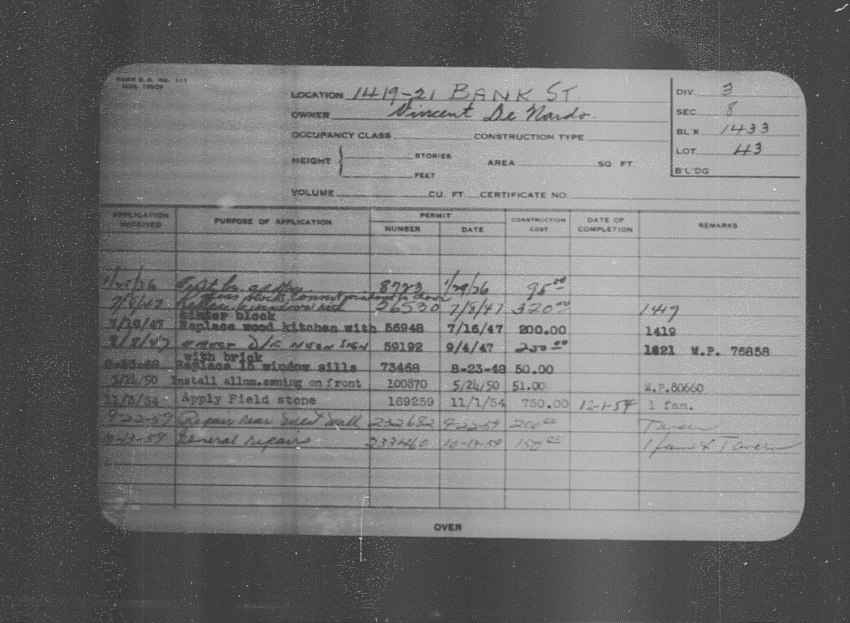 LOCATION 1419-21 BANK ST
OWNER Vincent De Nardo.
OCCUPANCY CLASS CONSTRUCTION TYPE
HEIGHT STORIES AREA SQ FT
FEET
VOLUME CU. FT. CERTIFICATE NO
DIV. 3
SEC 8
BL'K 1433
LOT 43
B'L'DG
APPLICATION RECEIVED PURPOSE OF APPLICATION PERMIT NUMBER DATE CONSTRUCTION COST DATE OF COMPLETION REMARKS
8723 1/29/26 95.00
7/8/47 56530 7/8/47 320.00 1417
Cinder block
7/16/47 Replace wood kitchen with 56948 7/16/47 200.00 1419
8/8/47 ERECT D/F NEON SIGN 59192 9/4/47 250.00 1421 M.P. 75858
with brick
8-23-48 Replace 15 window sills 73468 8-23-48 50.00
5/24/50 Install allum.awning on front 100870 5/24/50 51.00 M.P.80660
11/3/54 Apply Field stone 169259 11/1/54 750.00 12-1-54 1 fam.
9-22-59 Repair rear wall 232682 9-22-59 200.00 Tavern
10-13-59 General repairs 233460 10-13-59 150.00 1 fam & Tavern
OVER